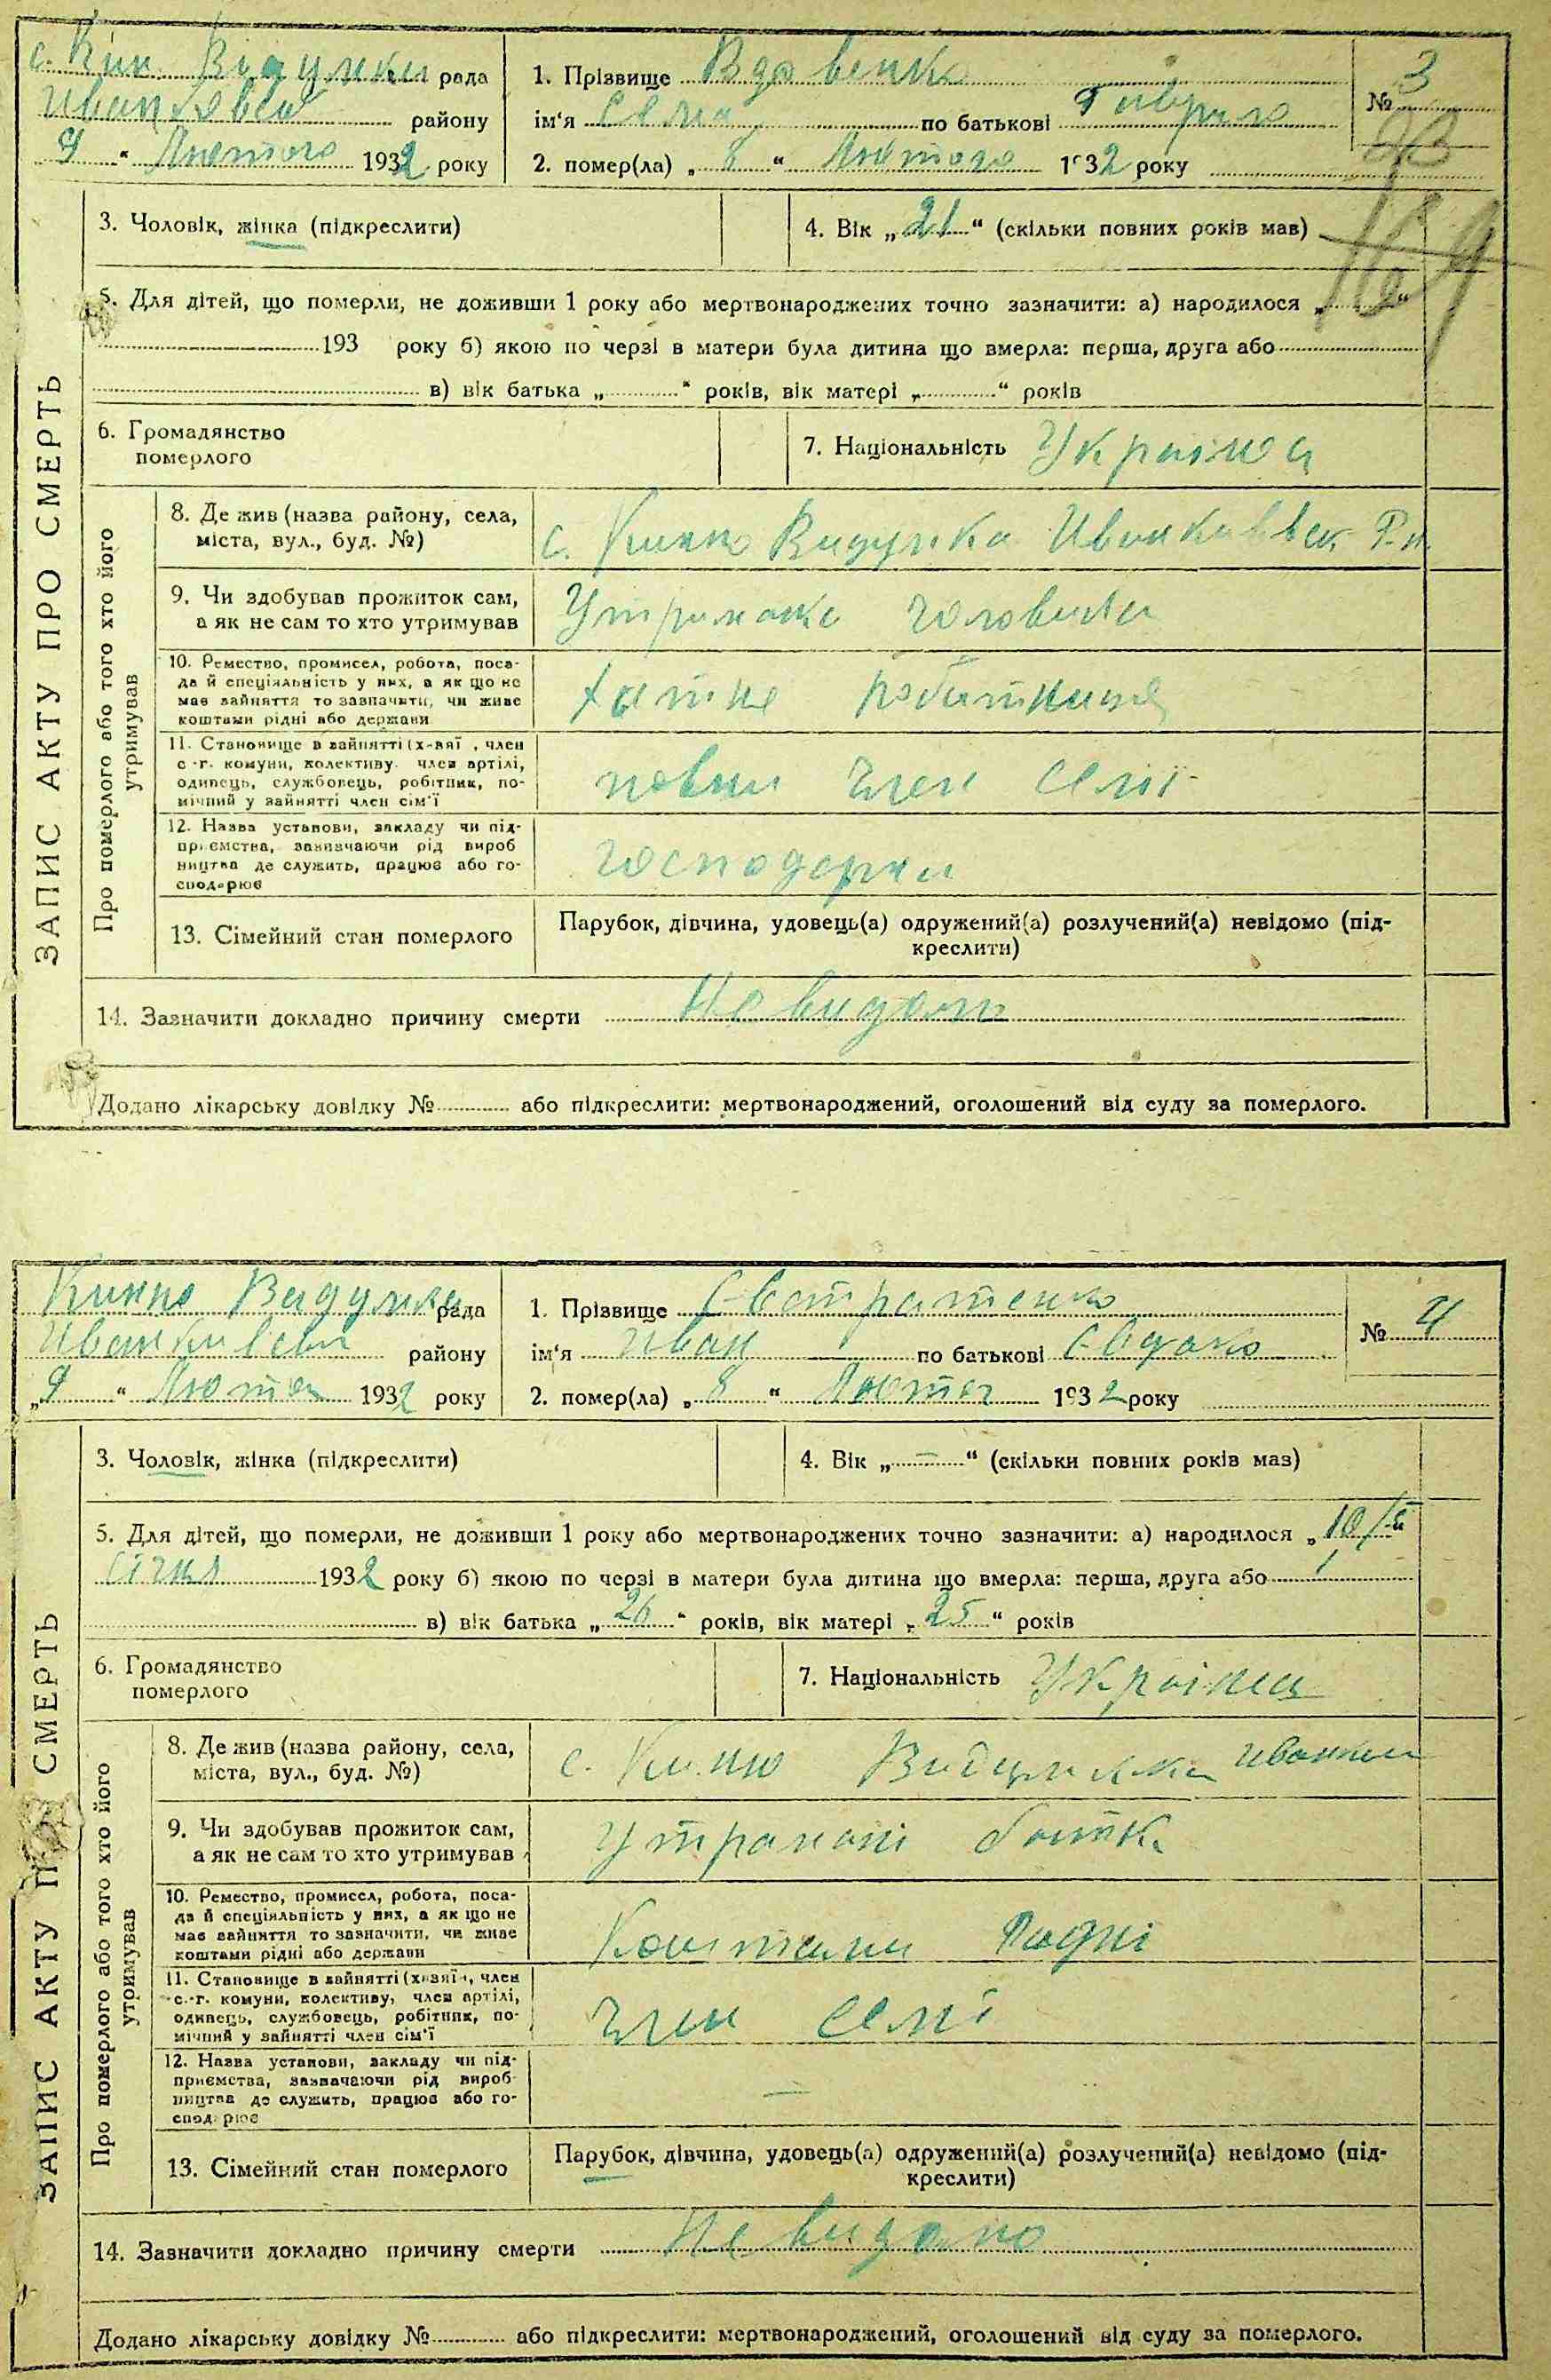 ЗАПИС АКТУ ПРО СМЕРТЬ
с. Кин Видумки рада
району
9 “ Лютого 1932 року
1. Прізвище Вдовенко
ім‘я по батькові
2. помер(ла) „ 8 “ Лютого 1932 року
№ 3
3. Чоловік, жінка (підкреслити)
4. Вік „ 21 “ (скільки повних років мав)
5. Для дітей, що померли, не доживши 1 року або мертвонароджених точно зазначити: а) народилося „ “
193 року б) якою по черзі в матери була дитина що вмерла: перша, друга або
в) вік батька „ “ років, вік матері „ “ років
6. Громадянство
померлого
7. Національність Україна
Про померлого або того хто його
утримував
8. Де жив (назва району, села,
міста, вул., буд. №)
с. Кинно Видумка
9. Чи здобував прожиток сам,
а як не сам то хто утримував
10. Ремество, промисел, робота, поса-
да й спеціяльність у них, а як що не
має зайняття то зазначити, чи живе
коштами рідні або держави
хатне
11. Становище в зайнятті (х-зяї , член
с.-г. комуни, колективу, член артілі,
одинець, службовець, робітник, по-
мічний у зайнятті член сім'ї
член семї
12. Назва установи, закладу чи під-
приємства, зазначаючи рід вироб
ництва де служить, працює або го-
сподарює
господарки
13. Сімейний стан померлого
Парубок, дівчина, удовець(а) одружений(а) розлучений(а) невідомо (під-
креслити)
14. Зазначити докладно причину смерти
Додано лікарську довідку № або підкреслити: мертвонароджений, оголошений від суду за померлого.
ЗАПИС АКТУ П СМЕРТЬ
Кинно Видумка рада
району
„9 “ Лютого 1932 року
1. Прізвище Євстратенко
ім‘я Иван по батькові
2. помер(ла) „ 8 “ Лютого 1932 року
№ 4
3. Чоловік, жінка (підкреслити)
4. Вік „ — “ (скільки повних років мав)
5. Для дітей, що померли, не доживши 1 року або мертвонароджених точно зазначити: а) народилося „ 10/I “
січня 1932 року б) якою по черзі в матери була дитина що вмерла: перша, друга або 1
в) вік батька „ 26 “ років, вік матері „ 25 “ років
6. Громадянство
померлого
7. Національність Україна
Про померлого або того хто його
утримував
8. Де жив (назва району, села,
міста, вул., буд. №)
с. Кинно Видумка
9. Чи здобував прожиток сам,
а як не сам то хто утримував
10. Ремество, промисел, робота, поса-
да й спеціяльність у них, а як що не
має зайняття то зазначити, чи живе
коштами рідні або держави
Коштами Родні
11. Становище в зайнятті (х-зяїн, член
с.-г. комуни, колективу, член артілі,
одинець, службовець, робітник, по-
мічний у зайнятті член сім'ї
член семї
12. Назва установи, закладу чи під-
приємства, зазначаючи рід вироб
ництва де служить, працює або го-
сподарює
—
13. Сімейний стан померлого
Парубок, дівчина, удовець(а) одружений(а) розлучений(а) невідомо (під-
креслити)
14. Зазначити докладно причину смерти Невидомо
Додано лікарську довідку № або підкреслити: мертвонароджений, оголошений від суду за померлого.